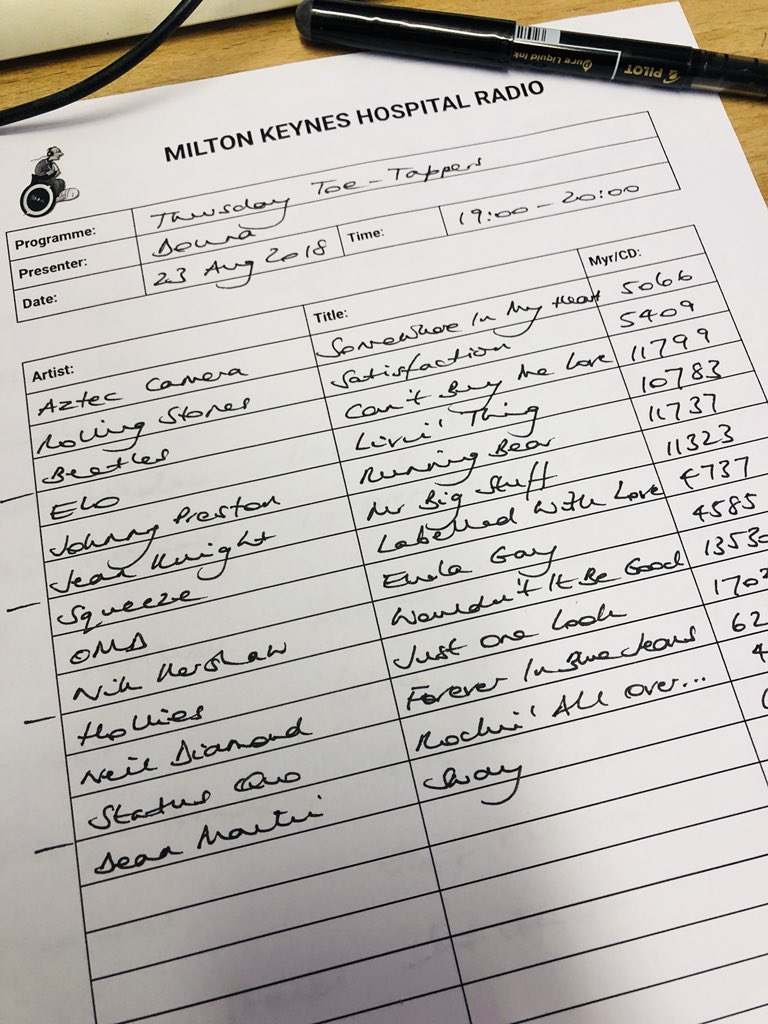 PILOT
Pure Liquid Ink
MILTON KEYNES HOSPITAL RADIO
Programme: Thursday Toe-Tappers
Presenter: Donna
Date: 23 Aug 2018 Time: 19:00 - 20:00
Artist: Title: Myr/CD:
Aztec Camera Somewhere In My Heart 5066
Rolling Stones Satisfaction 5409
Beatles Can't Buy Me Love 11799
ELO Livin' Thing 10783
Johnny Preston Running Bear 11737
Jean Knight Mr Big Stuff 11323
Squeeze Labelled With Love 4737
OMD Enola Gay 4585
Nik Kershaw Wouldn't It Be Good 13530
Hollies Just One Look 1702
Neil Diamond Forever In Blue Jeans 62
Status Quo Rockin' All Over... 4
Dean Martin Sway